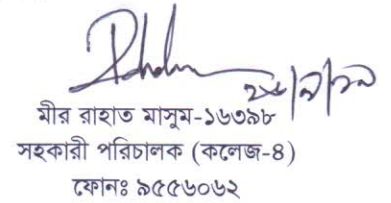 মীর রাহাত মাসুম-১৬৩৯৮
সহকারী পরিচালক (কলেজ-৪)
ফোনঃ ৯৫৫৬০৬২